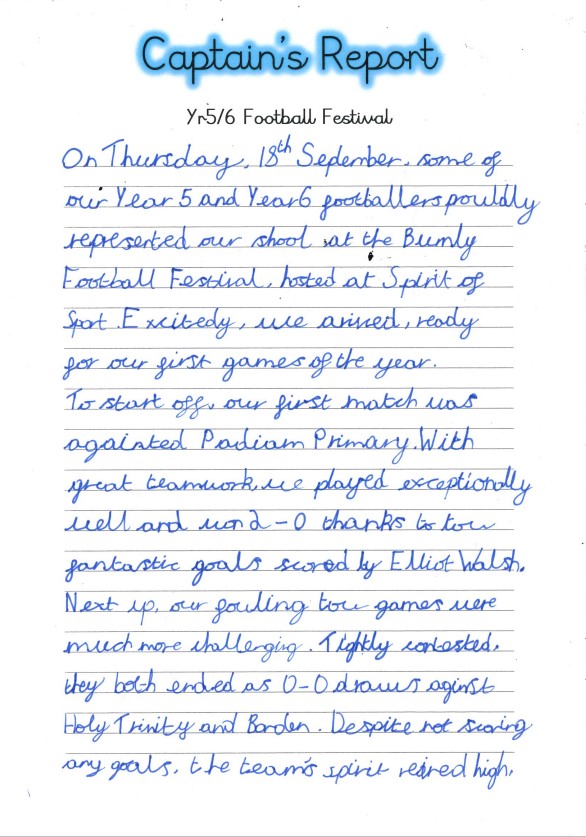 Captain's Report
Yr5/6 Football Festival
On Thursday, 18th September, some of
our Year 5 and Year 6 footballers pouldly
represented our shool at the Burnly
Football Festival, hosted at Spirit of
Sport. Excitedy, we arived, ready
for our first games of the year.
To start off, our first match was
againted Padiam Primary. With
great teamwork, we played exceptionally
well and won 2-0 thanks to tow
fantastic goals scored by Elliot Walsh.
Next up, our fouling tow games were
much more challenging. Tightly contested,
they both ended as 0-0 draws aginst
Holy Trinity and Barden. Despite not scoring
any goals, the team's spirit high,